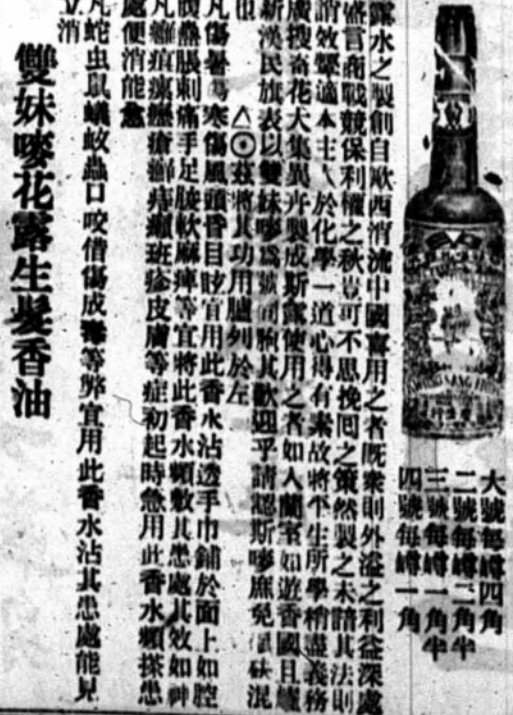 大號每樽四角
二號每樽二角半
三號每樽一角半
四號每樽一角
露水之製創自歐西消流中國喜用之者既衆則外溢之利益深處
盛言商戰競保利權之秋豈可不思挽囘之策然製之未諳其法則
謂效顰適本主人於化學一道心得有素故將平生所學稍盡義務
廣搜奇花大集異卉製成斯露使用之者如入蘭室如遊香國且
新漢民旗表以雙妹嘜爲號同胞其歡迎乎請認斯嘜庶免砆混
也
△◉茲將其功用臚列於左
凡傷暑寒傷風頭昏目眩宜用此香水沾透手巾鋪於面上如腔
悶熱脹刺痛手足酸軟麻痺等宜將此香水頻敷其患處其效如神
凡瘰癧瘡癬痔癩斑疹皮膚等症初起時急用此香水頻搽患
處便消能愈
凡蛇虫鼠蟻蚊蟲口咬借傷成等弊宜用此香水沾其患處能見
立消
雙妹嘜花露生髮香油